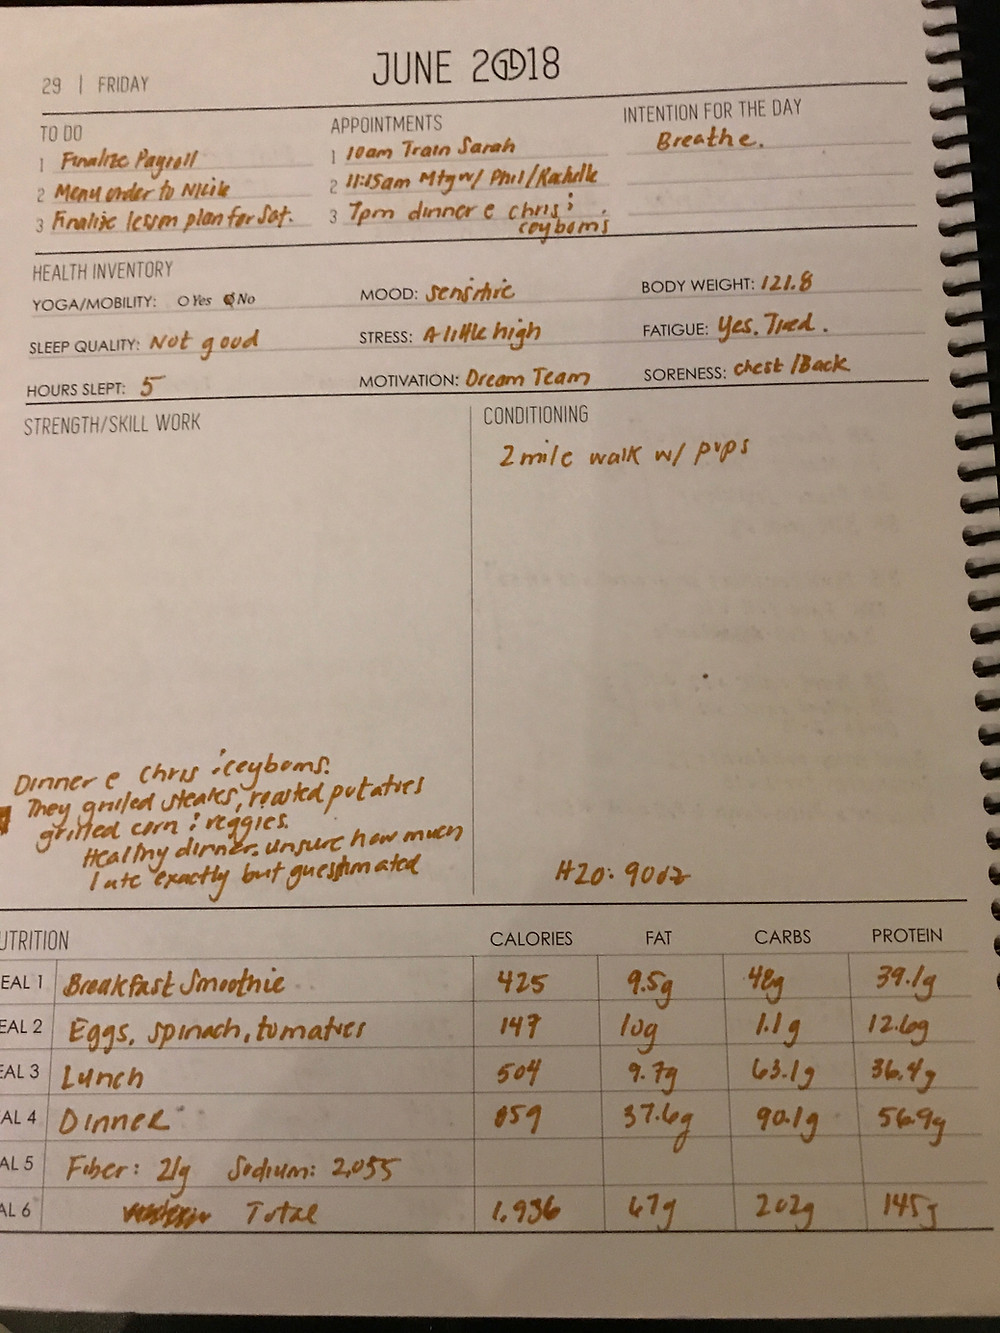 29 | FRIDAY
JUNE 2018
TO DO
1 Finalize Payroll
2 Menu order to Nicile
3 Finalize lesson plan for Sat.
APPOINTMENTS
1 10am Train Sarah
2 11:15am Mtg w/ Phil/Rachelle
3 7pm dinner c chris :
ceyboms
INTENTION FOR THE DAY
Breathe.
HEALTH INVENTORY
YOGA/MOBILITY: Yes No
MOOD: sensitive
BODY WEIGHT: 121.8
SLEEP QUALITY: Not good
STRESS: A little high
FATIGUE: Yes. Tired.
HOURS SLEPT: 5
MOTIVATION: Dream Team
SORENESS: chest /Back
STRENGTH/SKILL WORK
CONDITIONING
2 mile walk w/ pups
Dinner c Chris : ceyboms.
They grilled steaks, roasted potatoes
grilled corn : veggies.
Healthy dinner. unsure how much
I ate exactly but guesstimated
H20: 90oz
UTRITION CALORIES FAT CARBS PROTEIN
EAL 1 Breakfast Smoothie 425 9.5g 48g 39.1g
EAL 2 Eggs, spinach, tomatoes 147 10g 1.1g 12.6g
EAL 3 Lunch 504 9.7g 63.1g 36.4g
AL 4 Dinner 859 37.6g 90.1g 56.9g
AL 5 Fiber: 21g Sodium: 2,055
AL 6 Total 1,936 67g 202g 145g